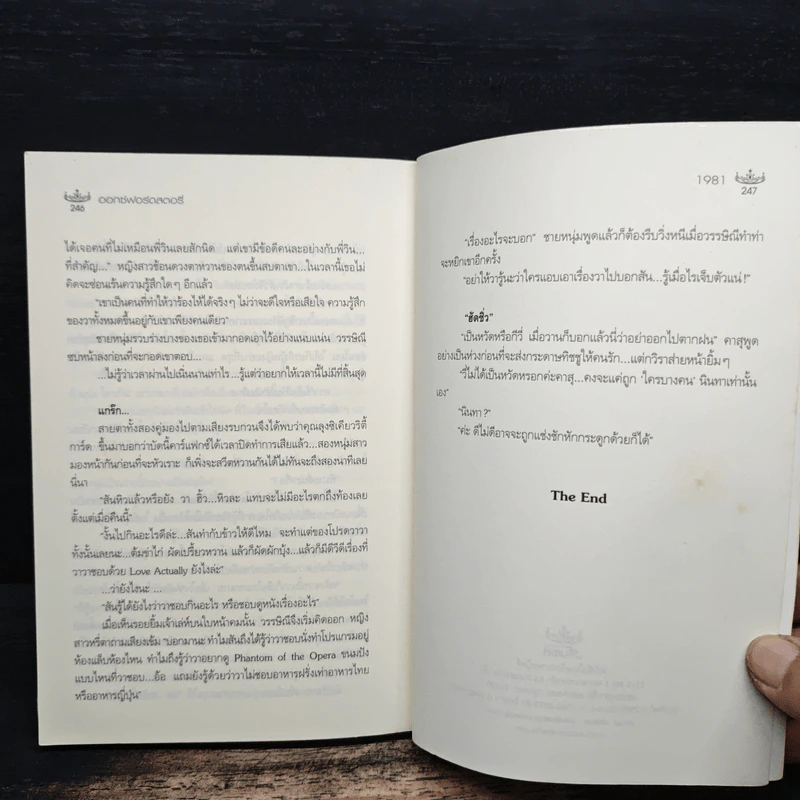 246
ออกซ์ฟอร์ดสตอรี่
ได้เจอคนที่ไม่เหมือนพี่วินเลยสักนิด แต่เขามีข้อดีคนละอย่างกับพี่วิน...
ที่สำคัญ..." หญิงสาวช้อนดวงตาหวานของตนขึ้นสบตาเขา...ในเวลานี้เธอไม่
คิดจะซ่อนเร้นความรู้สึกใดๆ อีกแล้ว
"เขาเป็นคนที่ทำให้วาร้องไห้ได้จริงๆ ไม่ว่าจะดีใจหรือเสียใจ ความรู้สึก
ของวาทั้งหมดขึ้นอยู่กับเขาเพียงคนเดียว"
ชายหนุ่มรวบร่างบางของเธอเข้ามากอดเอาไว้อย่างแนบแน่น วรรษิณี
ซบหน้าลงก่อนที่จะกอดเขาตอบ...
...ไม่รู้ว่าเวลาผ่านไปเนิ่นนานเท่าไร...รู้แต่ว่าอยากให้เวลานี้ไม่มีที่สิ้นสุด
แกร๊ก...
สายตาทั้งสองคู่มองไปตามเสียงรบกวนจึงได้พบว่าคุณลุงซิเคียวริตี้
การ์ด ขึ้นมาบอกว่าบัดนี้คาร์แฟกซ์ได้เวลาปิดทำการเสียแล้ว...สองหนุ่มสาว
มองหน้ากันก่อนที่จะหัวเราะ ก็เพิ่งจะสวีตหวานกันได้ไม่ทันจะถึงสองนาทีเลย
นี่นา
"สันหิวแล้วหรือยัง วา ฮิ้ว...หิวละ แทบจะไม่มีอะไรตกถึงท้องเลย
ตั้งแต่เมื่อคืนนี้"
"งั้นไปกินอะไรดีล่ะ...สันทำกับข้าวให้ดีไหม จะทำแต่ของโปรดวาวา
ทั้งนั้นเลยนะ...ต้มข่าไก่ ผัดเปรี้ยวหวาน แล้วก็ผัดผักบุ้ง...แล้วก็มีดีวีดีเรื่องที่
วาวาชอบด้วย Love Actually ยังไงล่ะ"
...ว่ายังไงนะ ...
"สันรู้ได้ยังไงว่าวาชอบกินอะไร หรือชอบดูหนังเรื่องอะไร"
เมื่อเห็นรอยยิ้มเจ้าเล่ห์บนใบหน้าคมนั้น วรรษิณีจึงเริ่มคิดออก หญิง
สาวหรี่ตาถามเสียงเข้ม "บอกมานะ ทำไมสันถึงได้รู้ว่าวาชอบนั่งทำโปรแกรมอยู่
ห้องแล็บห้องไหน ทำไมถึงรู้ว่าวาอยากดู Phantom of the Opera ขนมปัง
แบบไหนที่วาชอบ...อ้อ แถมยังรู้ด้วยว่าวาไม่ชอบอาหารฝรั่งเท่าอาหารไทย
หรืออาหารญี่ปุ่น"
1981
247
"เรื่องอะไรจะบอก" ชายหนุ่มพูดแล้วก็ต้องรีบวิ่งหนีเมื่อวรรษิณีทำท่า
จะหยิกเขาอีกครั้ง
"อย่าให้วารู้นะว่าใครแอบเอาเรื่องวาไปบอกสัน...รู้เมื่อไรเจ็บตัวแน่!"
"ฮัดชิ่ว"
"เป็นหวัดหรือกีวี่ เมื่อวานก็บอกแล้วนี่ว่าอย่าออกไปตากฝน" คาสุพูด
อย่างเป็นห่วงก่อนที่จะส่งกระดาษทิชชูให้คนรัก...แต่กวิราส่ายหน้ายิ้มๆ
"วี่ไม่ได้เป็นหวัดหรอกค่ะคาสุ...คงจะแค่ถูก 'ใครบางคน' นินทาเท่านั้น
เอง"
"นินทา?"
"ค่ะ ดีไม่ดีอาจจะถูกแช่งชักหักกระดูกด้วยก็ได้"
The End